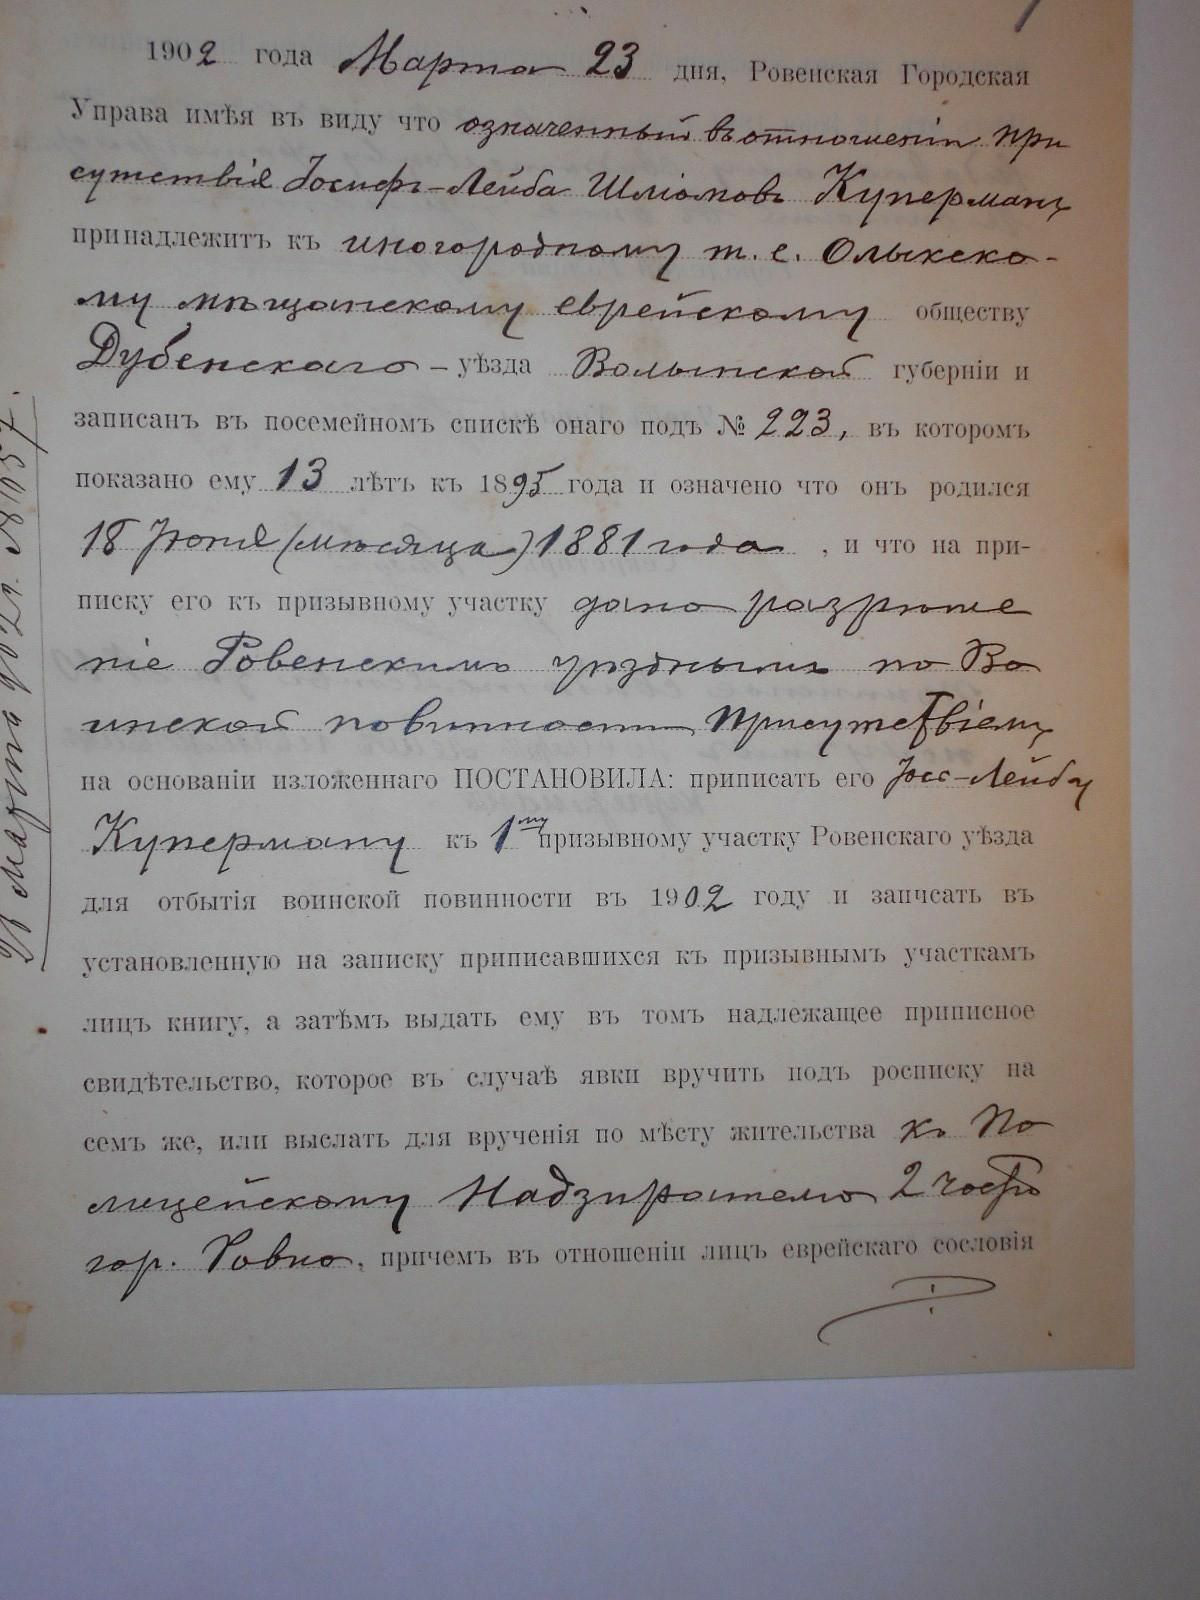 1902 года Марта 23 дня, Ровенская Городская
Управа имѣя въ виду что означенный въ отношеніи при
сутствія Іосифъ-Лейба Шліомовъ Куперманъ
принадлежитъ къ иногородному т. е. Олыкско-
му мѣщанскому еврейскому обществу
Дубенскаго - уѣзда Волынской губерніи и
записанъ въ посемейномъ спискѣ онаго подъ № 223, въ которомъ
показано ему 13 лѣтъ къ 1895 года и означено что онъ родился
18 Іюня (мѣсяца) 1881 года , и что на при-
писку его къ призывному участку дано разрѣше
ніе Ровенскимъ уѣзднымъ по Во
инской повинности Присутствіемъ
на основаніи изложеннаго ПОСТАНОВИЛА: приписать его Іос-Лейбу
Куперману къ 1му призывному участку Ровенскаго уѣзда
для отбытія воинской повинности въ 1902 году и записать въ
установленную на записку приписавшихся къ призывнымъ участкамъ
лицъ книгу, а затѣмъ выдать ему въ томъ надлежащее приписное
свидѣтельство, которое въ случаѣ явки вручить подъ росписку на
семъ же, или выслать для врученія по мѣсту жительства къ По
лицейскому Надзирателю 2 части
гор. Ровно, причемъ въ отношеніи лицъ еврейскаго сословія
Марта 902 г. № 1057.